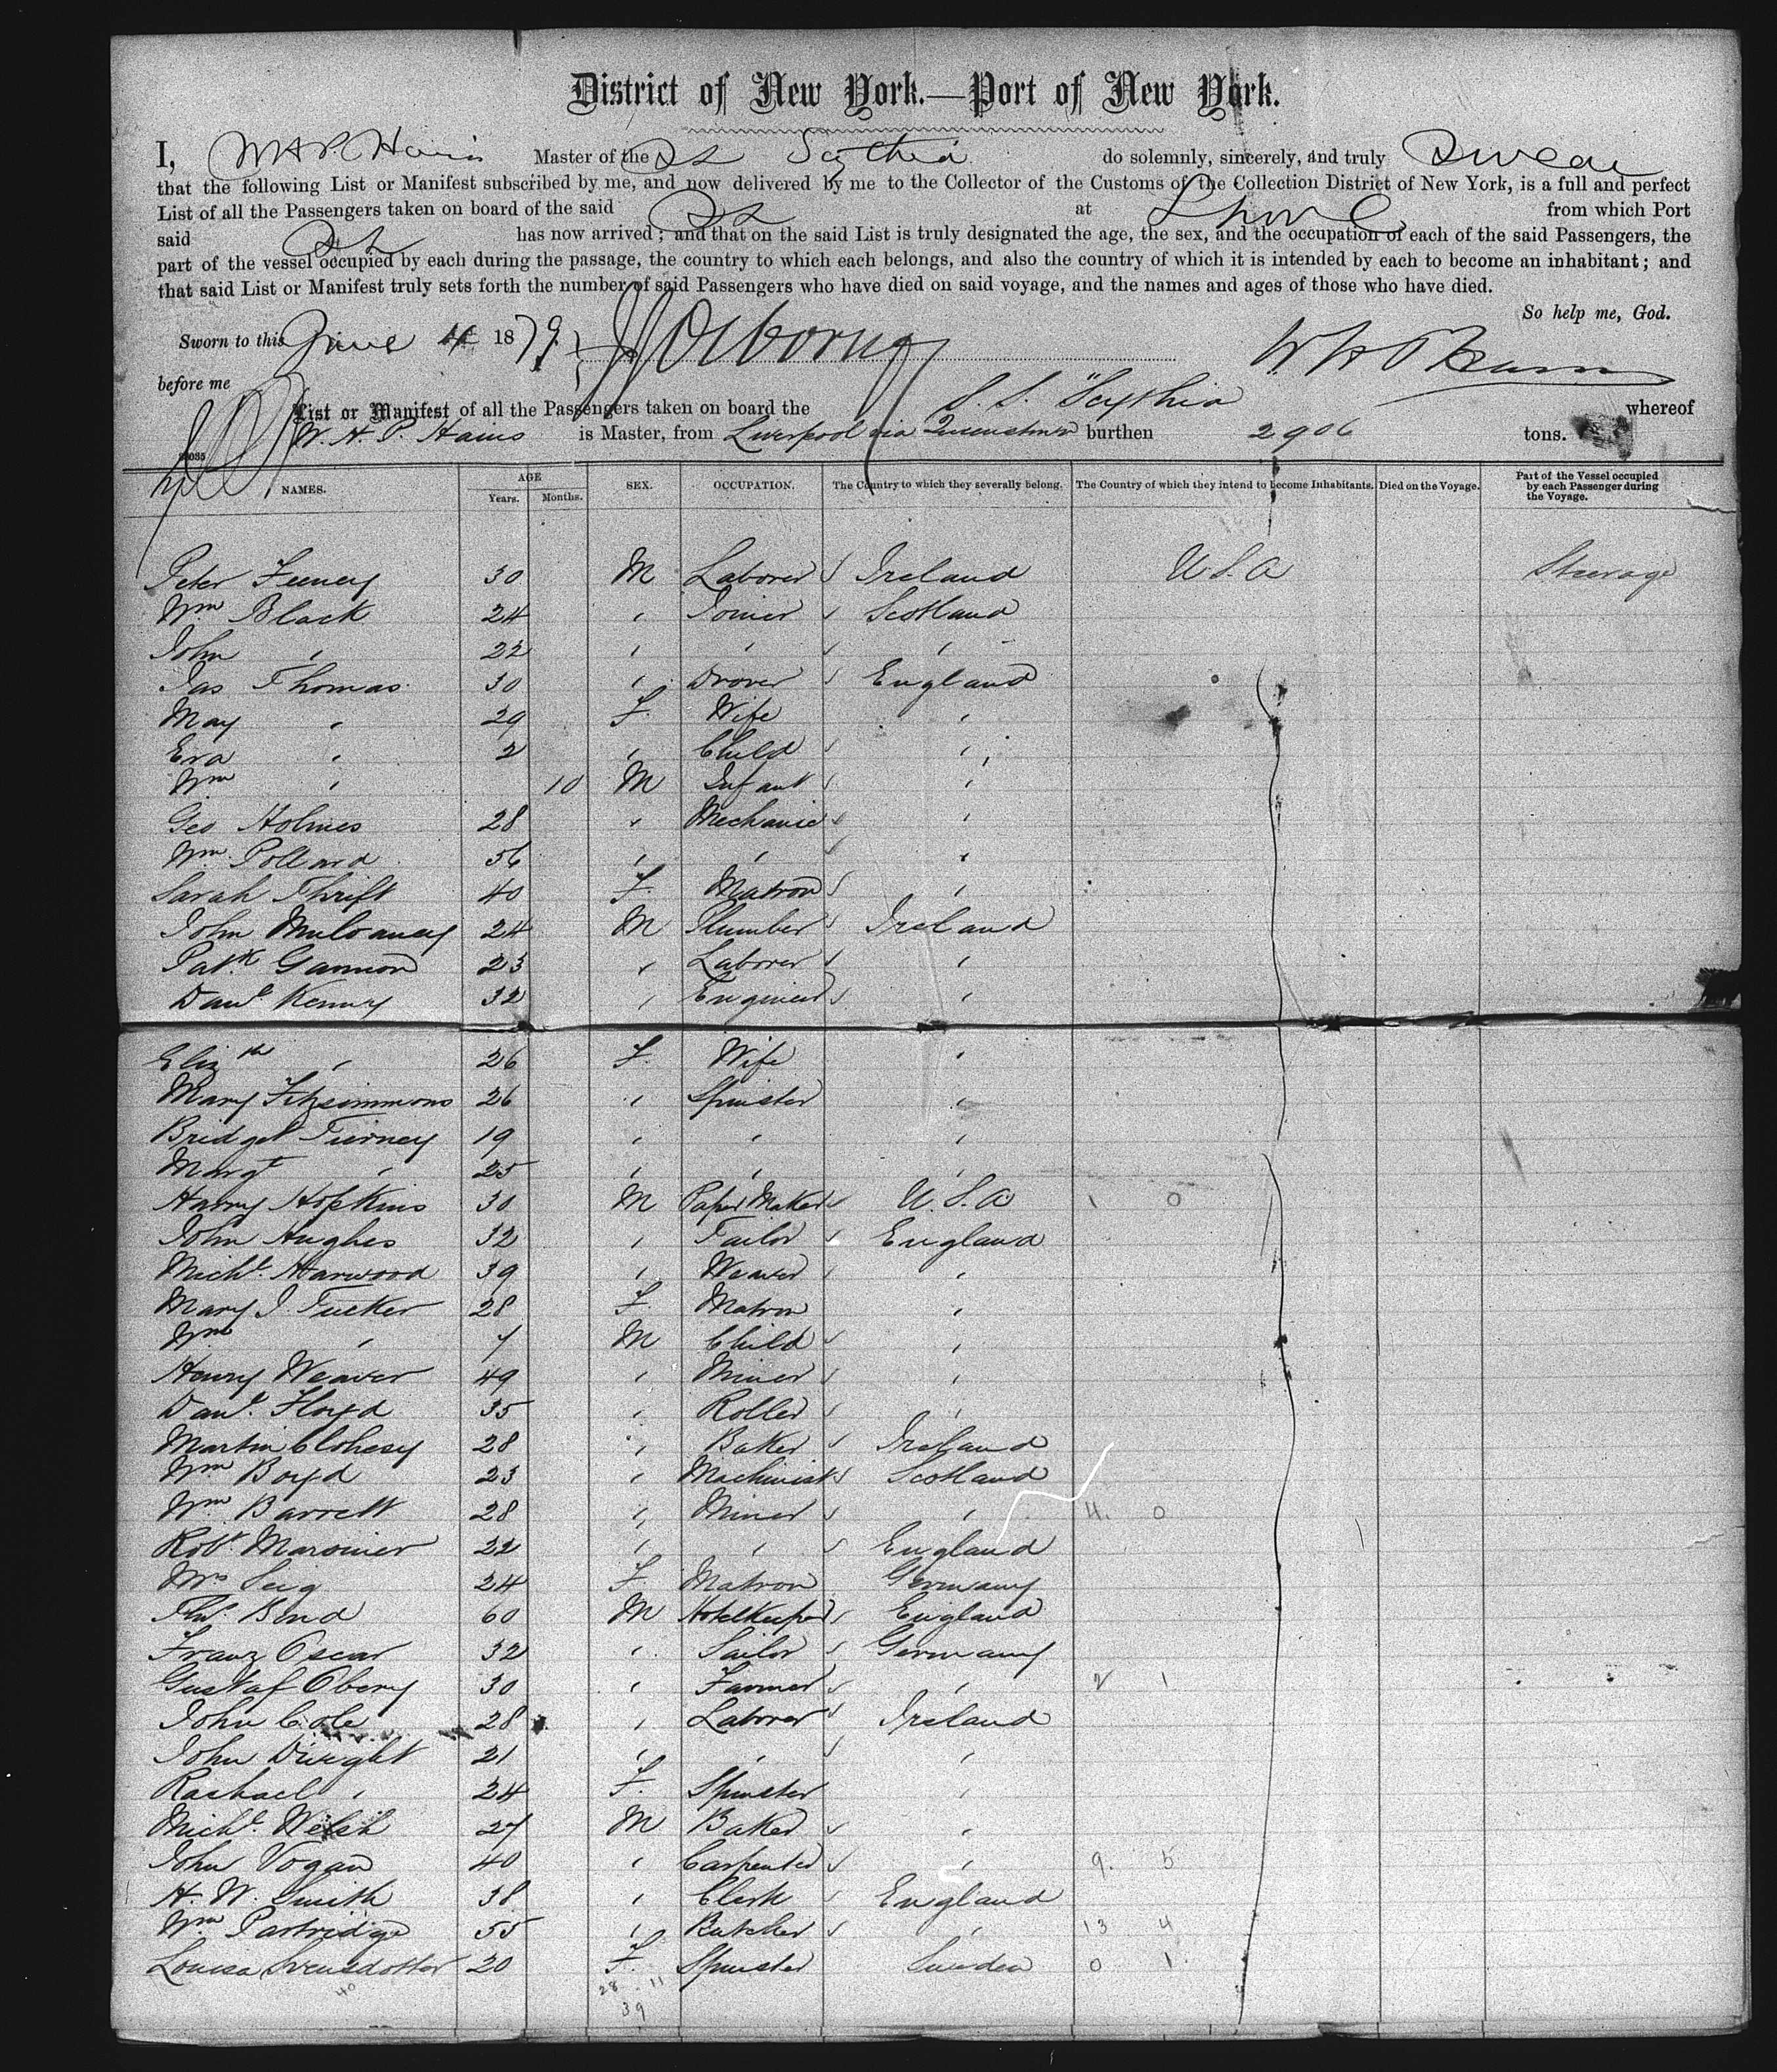 District of New York.—Port of New York.
I, W H P Hains Master of the SS Scythia do solemnly, sincerely, and truly Swear
that the following List or Manifest subscribed by me, and now delivered by me to the Collector of the Customs of the Collection District of New York, is a full and perfect
List of all the Passengers taken on board of the said SS at Lpool from which Port
said SS has now arrived; and that on the said List is truly designated the age, the sex, and the occupation of each of the said Passengers, the
part of the vessel occupied by each during the passage, the country to which each belongs, and also the country of which it is intended by each to become an inhabitant; and
that said List or Manifest truly sets forth the number of said Passengers who have died on said voyage, and the names and ages of those who have died.
So help me, God.
Sworn to this June 1879 Osborne W H P Hains
before me
List or Manifest of all the Passengers taken on board the S. S. "Scythia whereof
W. H. P. Hains is Master, from Liverpool via Queenstown burthen 2906 tons.
NAMES. AGE Years. Months. SEX. OCCUPATION. The Country to which they severally belong. The Country of which they intend to become Inhabitants. Died on the Voyage. Part of the Vessel occupied by each Passenger during the Voyage.
Peter Feeney 30 M Laborer Ireland U S A Steerage
Wm Black 24 " Joiner Scotland
John " 22 " " "
Jas Thomas 30 " Drover England
May " 29 F. Wife "
Eva " 2 " Child "
Wm " 10 M Infant "
Geo Holmes 28 " Mechanic "
Wm Pollard 56 " " "
Sarah Thrift 40 F. Matron "
John Muloaney 24 M Plumber Ireland
Patk Gannon 23 " Laborer "
Danl Kenny 32 " Engineer "
Elizth " 26 F. Wife "
Mary Fitzsimmons 26 " Spinster "
Bridget Tierney 19 " " "
Margt " 25 " " "
Harry Hopkins 30 M Paper Maker U.S.A 1 0
John Hughes 32 " Tailor England
Michl. Harwood 39 " Weaver "
Mary J. Tucker 28 F. Matron "
Wm " 7 M Child "
Henry Weaver 49 " Miner "
Danl. Floyd 35 " Roller "
Martin Clohesy 28 " Baker Ireland
Wm Boyd 23 " Machinist Scotland
Wm. Barrett 28 " Miner " 4. 0
Robt. Marriner 22 " " England
Mrs 24 F. Matron Germany
Bond 60 M Hotelkeeper England
Franz Oscar 32 " Sailor Germany
Gustaf Obery 30 " Farmer " 2 1
John Cole 28 " Laborer Ireland
John Dwight 21 " " "
Rachael " 24 F. Spinster "
Michl. Welsh 27 M Baker "
John Vogan 40 " Carpenter " 9. 5
H. W. Smith 38 " Clerk England
Wm Partridge 55 " Butcher " 13 4
Louisa Svensdotter 20 F. Spinster Sweden 0 1.
40 28 11
39